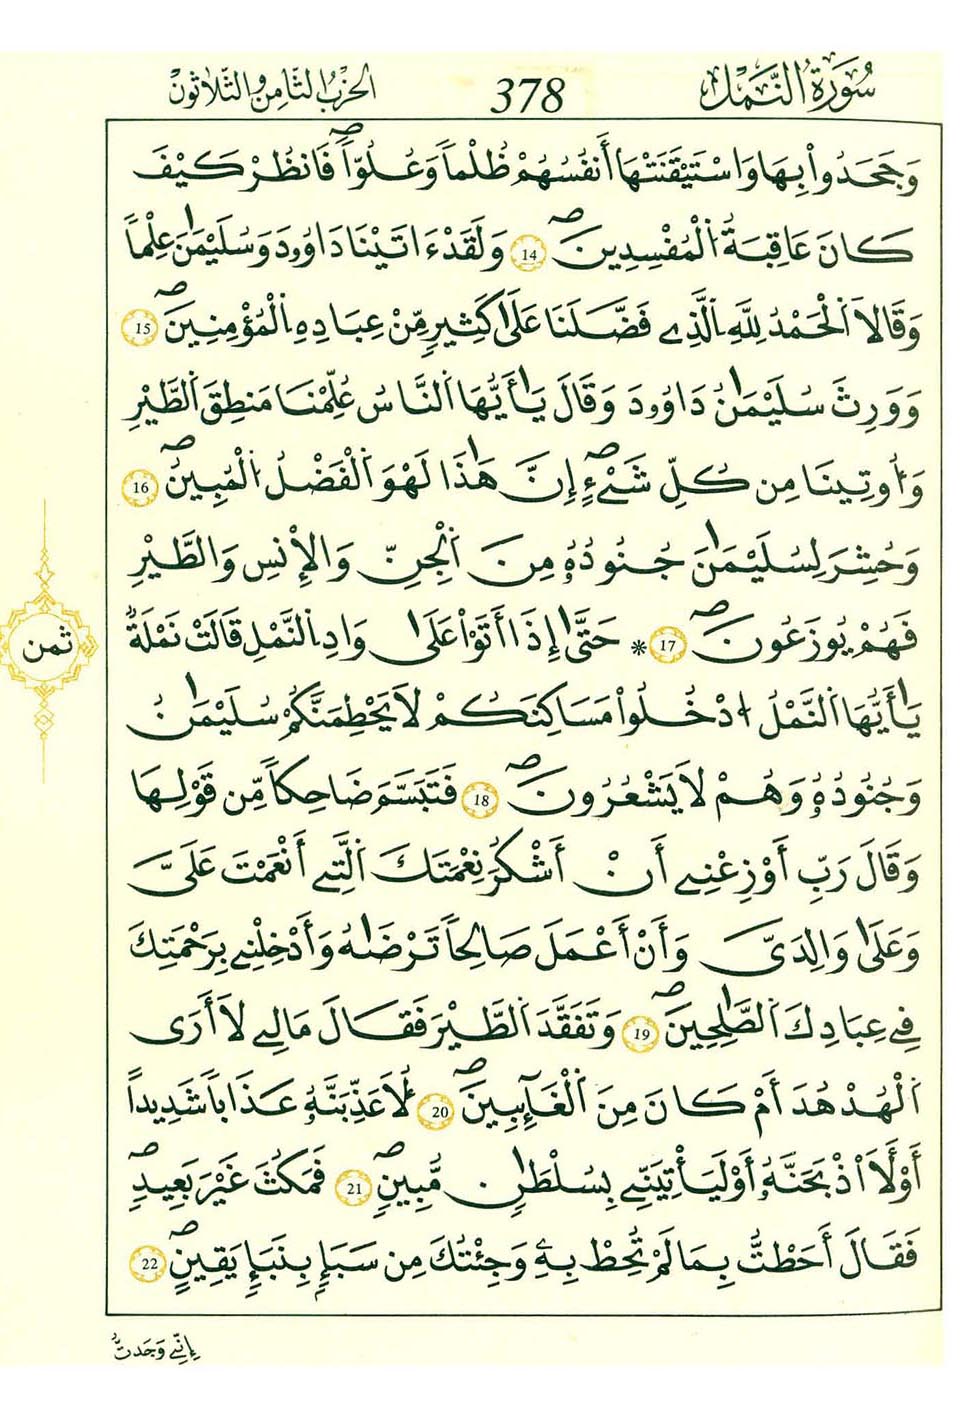 سُورَةُ النَّمْلِ 378 الحِزْبُ الثَّامِنُ وَالثَّلَاثُونَ
وَجَحَدُواْ بِهَا وَاسْتَيْقَنَتْهَا أَنفُسُهُمْ ظُلْماً وَعُلُوّاًۖ فَانظُرْ كَيْفَ
كَانَ عَاقِبَةُ اُ۬لْمُفْسِدِينَۖ 14 وَلَقَدْ ءَاتَيْنَا دَاوُۥدَ وَسُلَيْمَٰنَ عِلْماً
وَقَالَا اَ۬لْحَمْدُ لِلهِ اِ۬لَّذِے فَضَّلَنَا عَلَىٰ كَثِيرٍ مِّنْ عِبَادِهِ اِ۬لْمُؤْمِنِينَۖ 15
وَوَرِثَ سُلَيْمَٰنُ دَاوُۥدَ وَقَالَ يَٰأَيُّهَا اَ۬لنَّاسُ عُلِّمْنَا مَنطِقَ اَ۬لطَّيْرِ
وَأُوتِينَا مِن كُلِّ شَےْءٍۖ إِنَّ هَٰذَا لَهُوَ اَ۬لْفَضْلُ اُ۬لْمُبِينُۖ 16
وَحُشِرَ لِسُلَيْمَٰنَ جُنُودُهُۥ مِنَ اَ۬لْجِنِّ وَالْإِنسِ وَالطَّيْرِ
فَهُمْ يُوزَعُونَۖ 17 * حَتَّىٰ إِذَا أَتَوْاْ عَلَىٰ وَادِ اِ۬لنَّمْلِ قَالَتْ نَمْلَةٌ
يَٰأَيُّهَا اَ۬لنَّمْلُ اُ۟دْخُلُواْ مَسَاكِنَكُمْ لَا يَحْطِمَنَّكُمْ سُلَيْمَٰنُ
وَجُنُودُهُۥ وَهُمْ لَا يَشْعُرُونَۖ 18 فَتَبَسَّمَ ضَاحِكاً مِّن قَوْلِهَا
وَقَالَ رَبِّ أَوْزِعْنِے أَنْ أَشْكُرَ نِعْمَتَكَ اَ۬لَّتِے أَنْعَمْتَ عَلَيَّ
وَعَلَىٰ وَالِدَيَّ وَأَنْ أَعْمَلَ صَالِحاً تَرْضَىٰهُ وَأَدْخِلْنِے بِرَحْمَتِكَ
فِے عِبَادِكَ اَ۬لصَّٰلِحِينَۖ 19 وَتَفَقَّدَ اَ۬لطَّيْرَ فَقَالَ مَالِے لَا أَرَى
اَ۬لْهُدْهُدَ أَمْ كَانَ مِنَ اَ۬لْغَآئِبِينَۖ 20 لَأُعَذِّبَنَّهُۥ عَذَاباً شَدِيداً
أَوْ لَأَاْذْبَحَنَّهُۥ أَوْ لَيَأْتِيَنِّے بِسُلْطَٰنٍ مُّبِينٍۖ 21 فَمَكُثَ غَيْرَ بَعِيدٍۖ
فَقَالَ أَحَطتُّ بِمَا لَمْ تُحِطْ بِهِۦ وَجِئْتُكَ مِن سَبَإٍ بِنَبَإٍ يَقِينٍۖ 22
ثمن
إِنِّے وَجَدتُّ